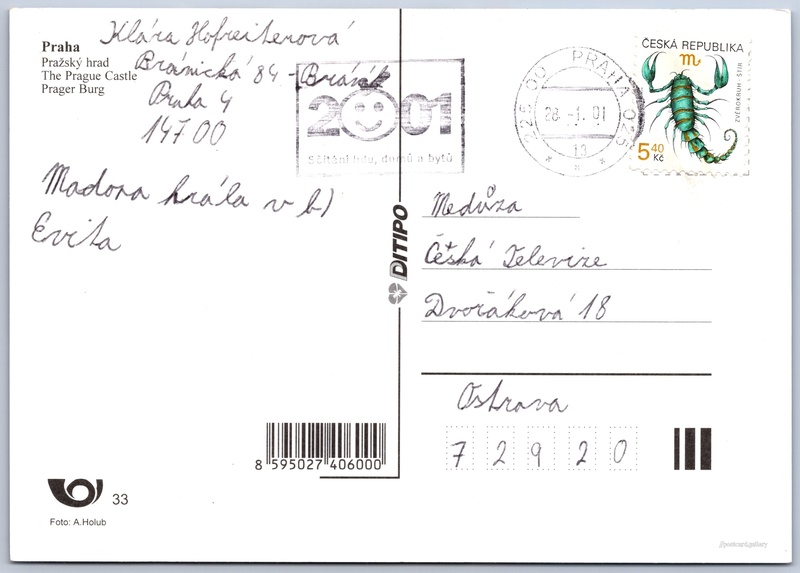 Praha
Pražský hrad
The Prague Castle
Prager Burg
Klára Hofreiterová
Bránická 84 - Bráník
Praha 4
147 00
Madona hrála v b)
Evita
2001
Sčítání lidu, domů a bytů
225 00 PRAHA 025
28.-1.01
ČESKÁ REPUBLIKA
ZVĚROKRUH ŠTÍR
5 40
Kč
DITIPO
Medůza
Česká Televize
Dvořákova 18
Ostrava
7 2 9 2 0
8 595027 406000
33
Foto: A.Holub